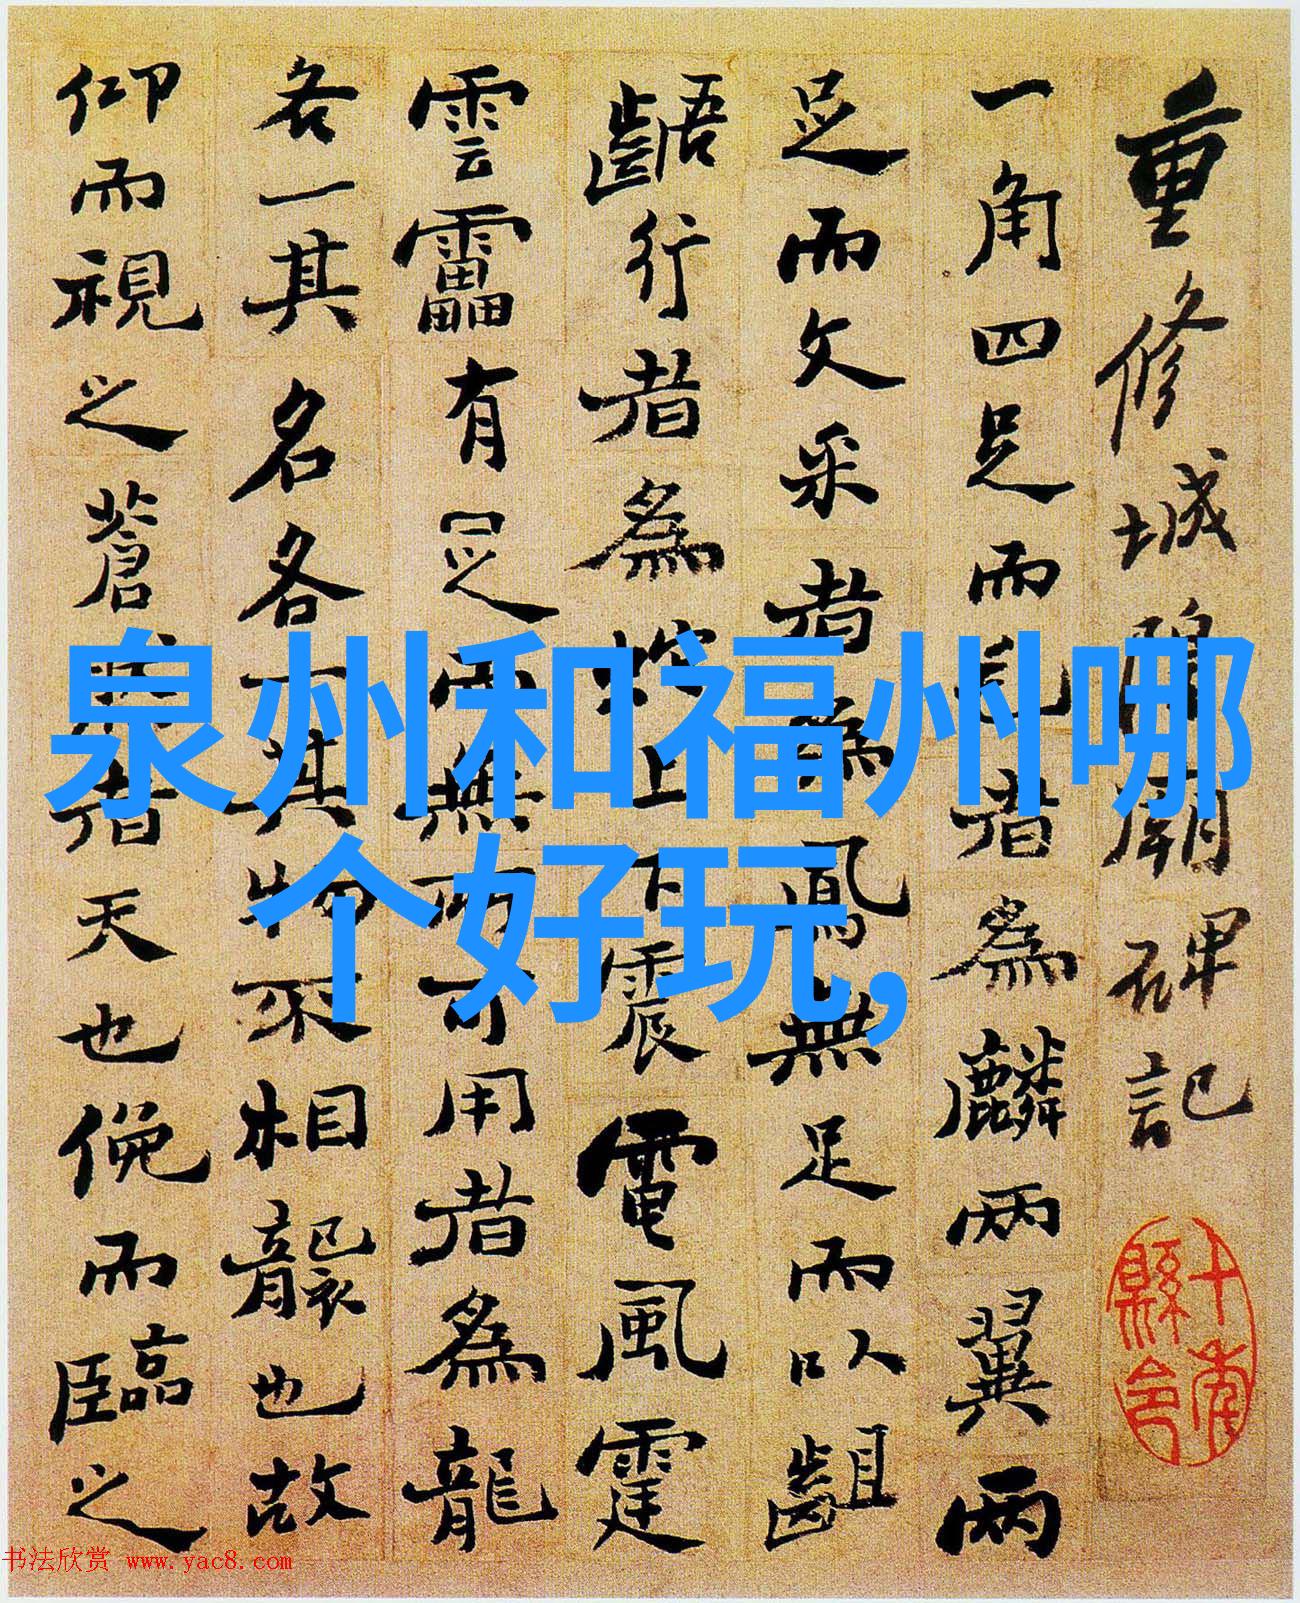 重修城隍廟碑記
一角四足而毛者為麟兩翼兩
足而文采者為鳳無足而以齟
齬行者為蛇上下震電風霆
雲靁有足而無所可用者為龍
各一其名各一其物不相襲也故
仰而視之蒼者天也俛而臨之
縣令
泉州和福州哪
个好玩,
书法欣赏 www.yac8.com